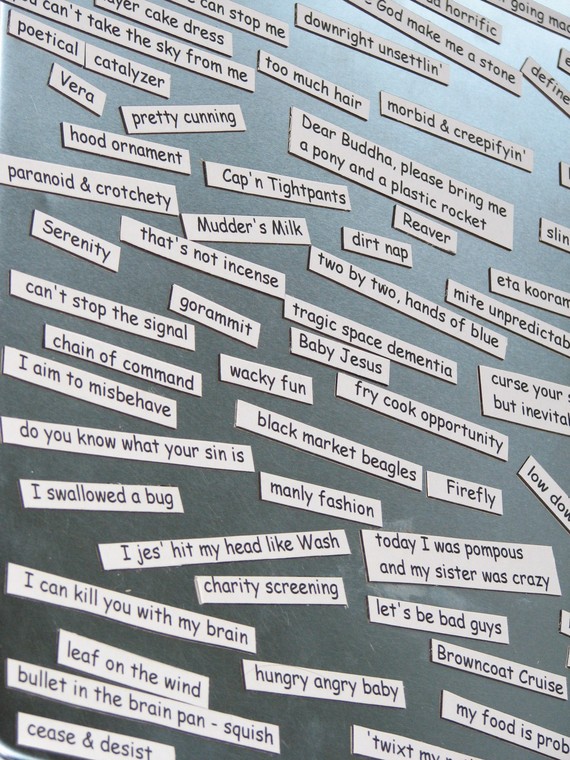 cake dress
can stop me
horrific
going
can't take the sky from me
God make me a stone
downright unsettlin'
poetical
catalyzer
define
too much hair
Vera
morbid & creepifyin'
pretty cunning
Dear Buddha, please bring me
a pony and a plastic rocket
hood ornament
Cap'n Tightpants
paranoid & crotchety
Reaver
Mudder's Milk
dirt nap
Serenity
that's not incense
two by two, hands of blue
eta
mite
can't stop the signal
gorammit
tragic space dementia
Baby Jesus
chain of command
wacky fun
curse your
but
I aim to misbehave
fry cook opportunity
do you know what your sin is
black market beagles
low
I swallowed a bug
manly fashion
Firefly
I jes' hit my head like Wash
today I was pompous
and my sister was crazy
charity screening
I can kill you with my brain
let's be bad guys
leaf on the wind
hungry angry baby
Browncoat Cruise
bullet in the brain pan - squish
my food is
cease & desist
'twixt my